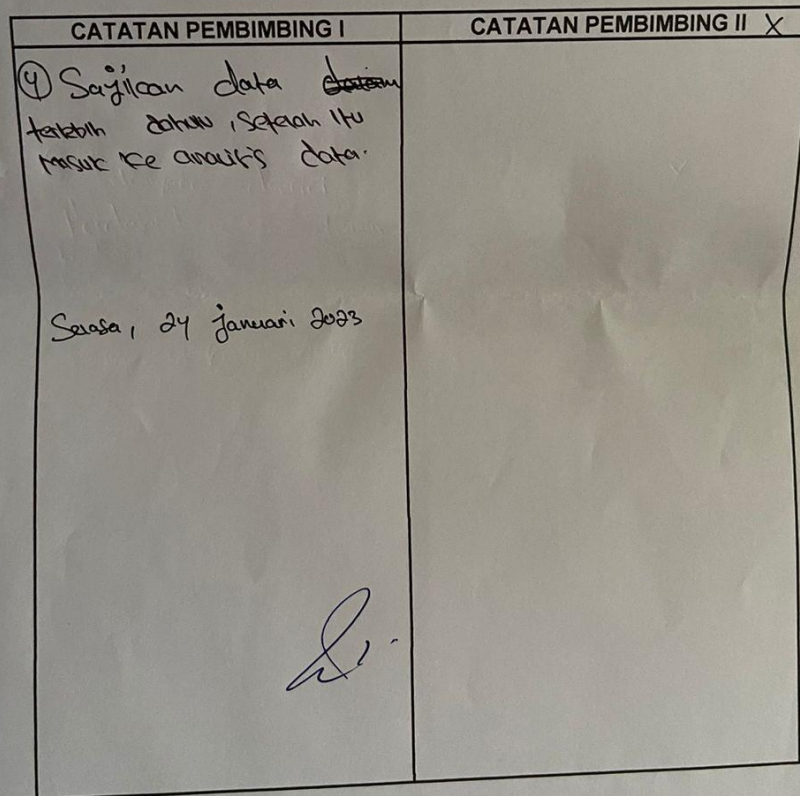 CATATAN PEMBIMBING I
CATATAN PEMBIMBING II X
④ Sajikan data
terlebih dahulu, setelah itu
masuk ke analisis data.
Selasa, 24 Januari 2023